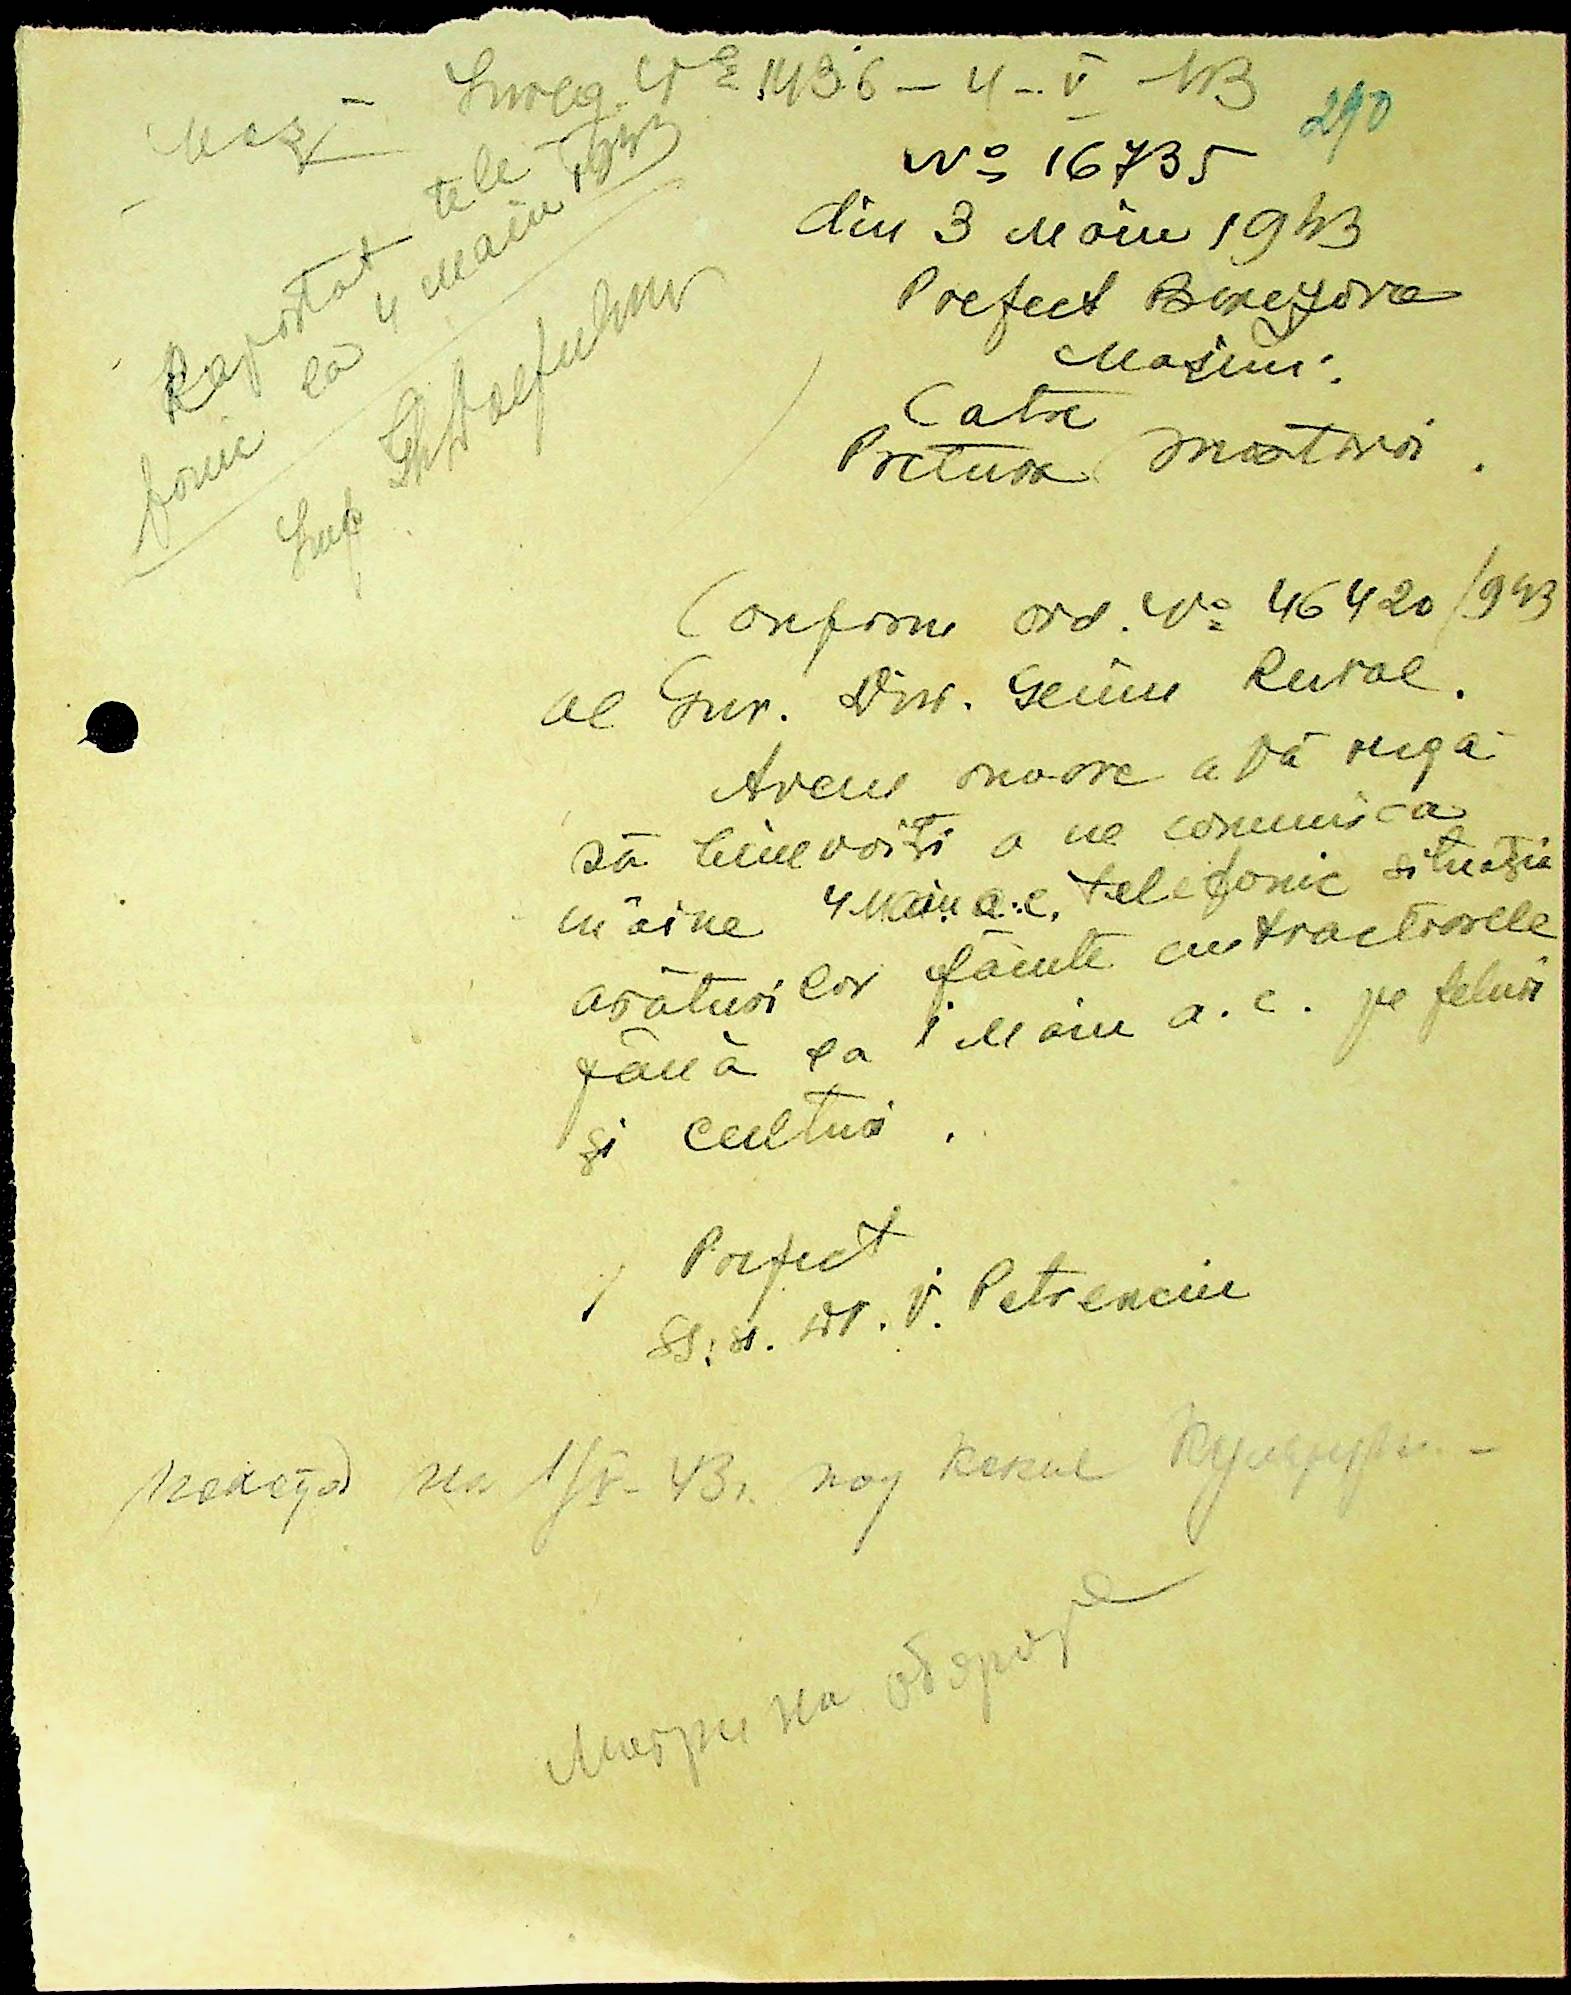 Inreg. Nº 1436 – 4 – V – 43
290
Nº 16735
din 3 Maiu 1943
Prefect Berezovca
Masini.
Catre
Pretura Mostovoi.
Raportat tele
fonic la 4 Maiu 1943
Conform ord. Nº 46420/943
al Guv. Dir. Geniu Rural.
Avem onoare a vă ruga
să binevoiți a ne comunica
mâine 4 Maiu a.c. telefonic situația
arăturilor făcute cu tractoarele
până la 1 Maiu a.c. pe feluri
și culturi.
/ Prefect
ss. Dr. V. Petrenciu
на 1/V - 43 г. под какие культуры. –
на оборот